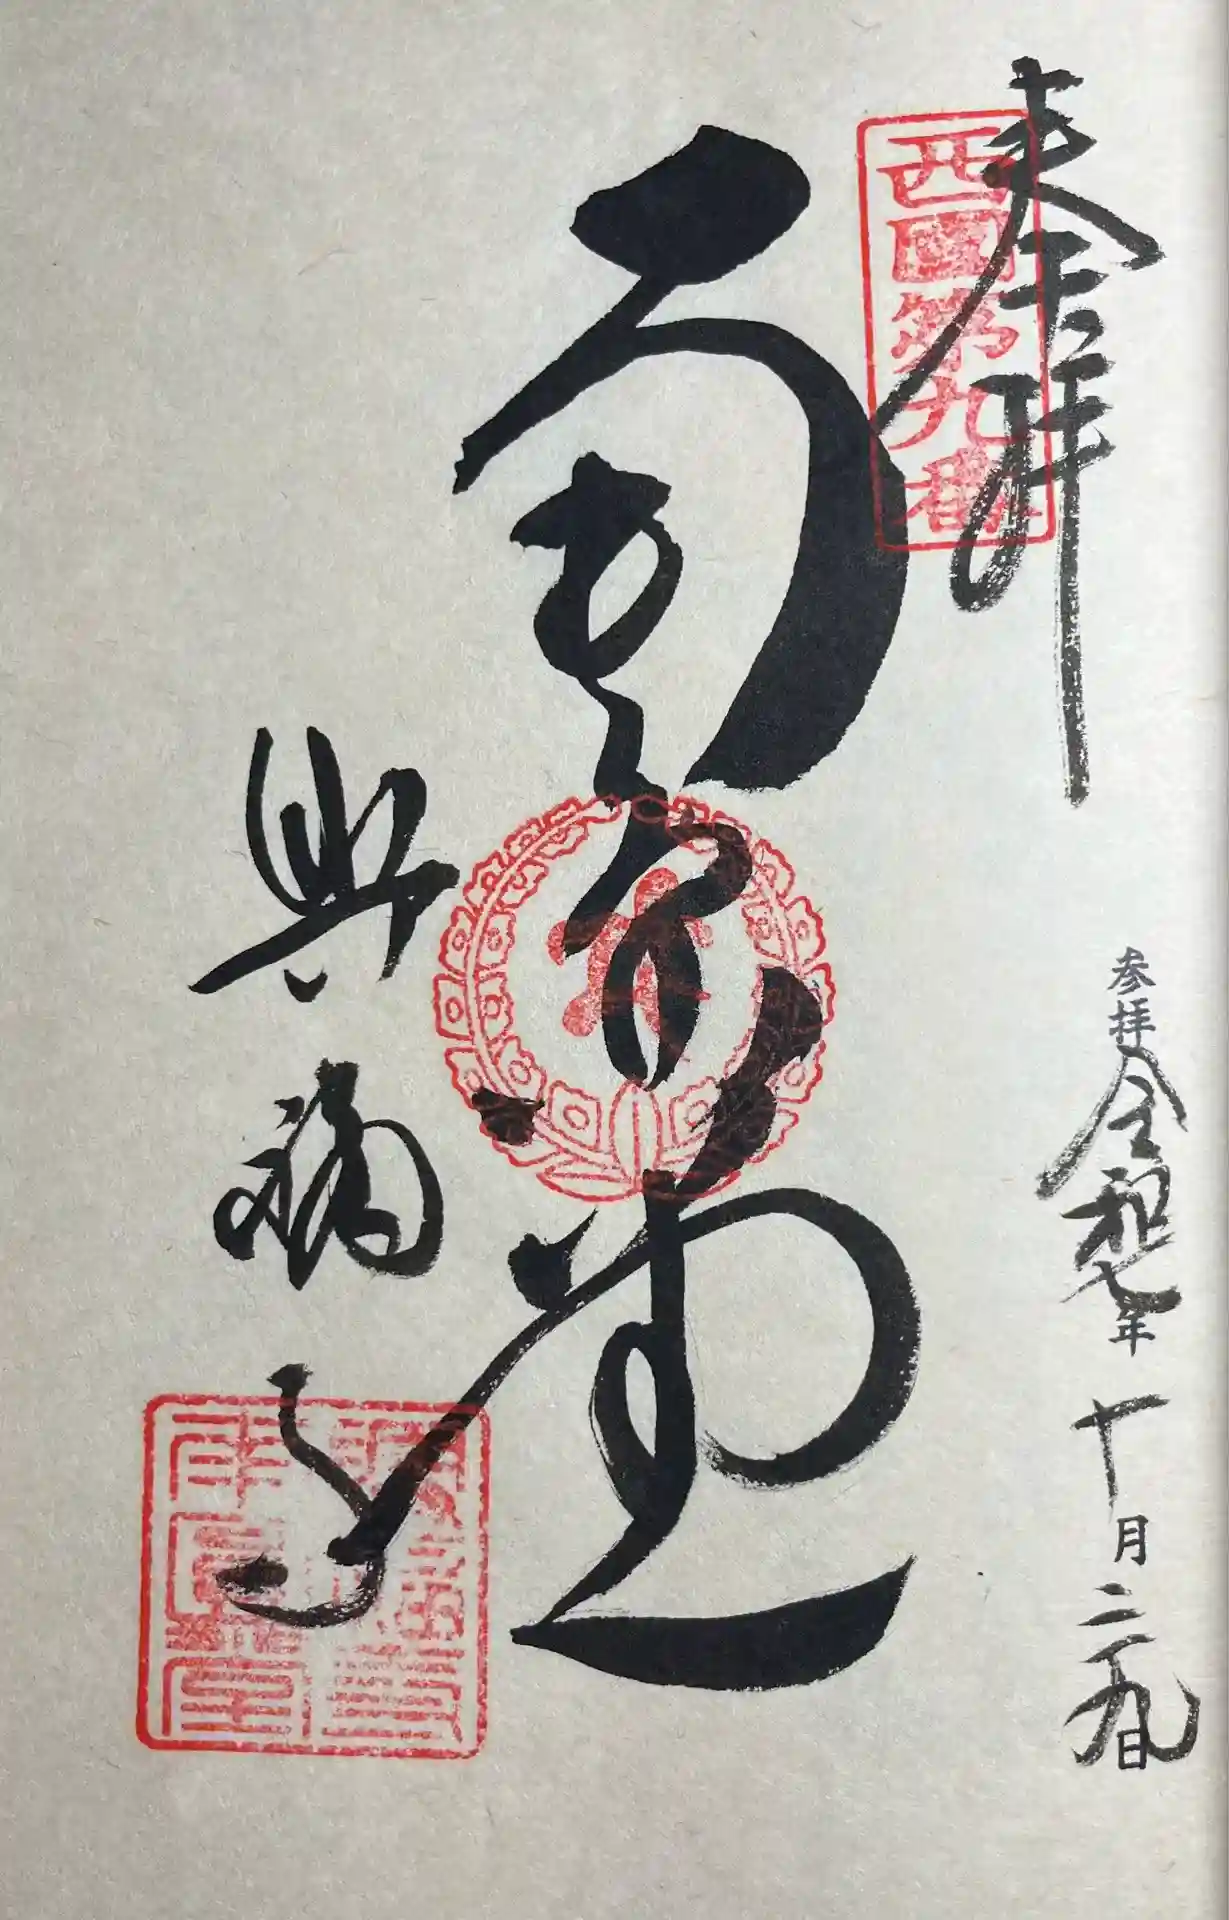 奉拝
西國第九番
参拝 令和七年十月二十九日
南円堂
興福寺